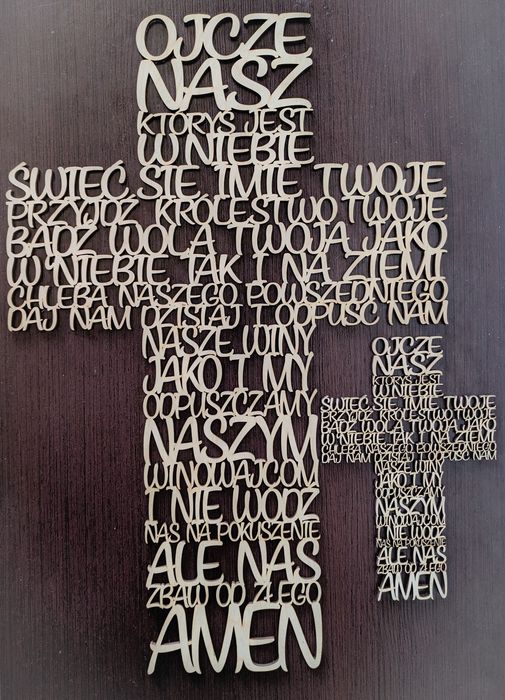 OJCZE
NASZ
KTÓRYŚ JEST
W NIEBIE
ŚWIĘĆ SIE IMIE TWOJE
PRZYJDZ KROLESTWO TWOJE
BADZ WOLA TWOJA JAKO
W NIEBIE TAK I NA ZIEMI
CHLEBA NASZEGO POWSZEDNIEGO
DAJ NAM DZISIAJ I ODPUSC NAM
NASZE WINY
JAKO I MY
ODPUSZCZAMY
NASZYM
WINOWAJCOM
I NIE WODZ
NAS NA POKUSZENIE
ALE NAS
ZBAW ODE ZŁEGO
AMEN
OJCZE
NASZ
KTORYS JEST
W NIEBIE
ŚWIĘĆ SIE IMIE TWOJE
PRZYJDZ KROLESTWO TWOJE
BADZ WOLA TWOJA JAKO
W NIEBIE TAK I NA ZIEMI
CHLEBA NASZEGO POWSZEDNIEGO
DAJ NAM DZISIAJ I ODPUSC NAM
NASZE WINY
JAKO I MY
ODPUSZCZAMY
NASZYM
WINOWAJCOM
I NIE WODZ
NAS NA POKUSZENIE
ALE NAS
ZBAW OD ZŁEGO
AMEN